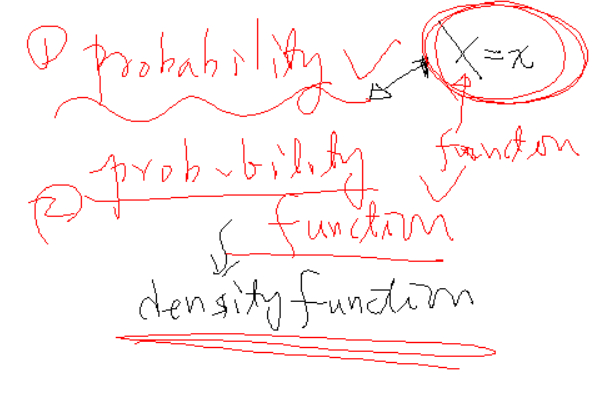 ① probability ✓ X = x
function
② probability
function
density function